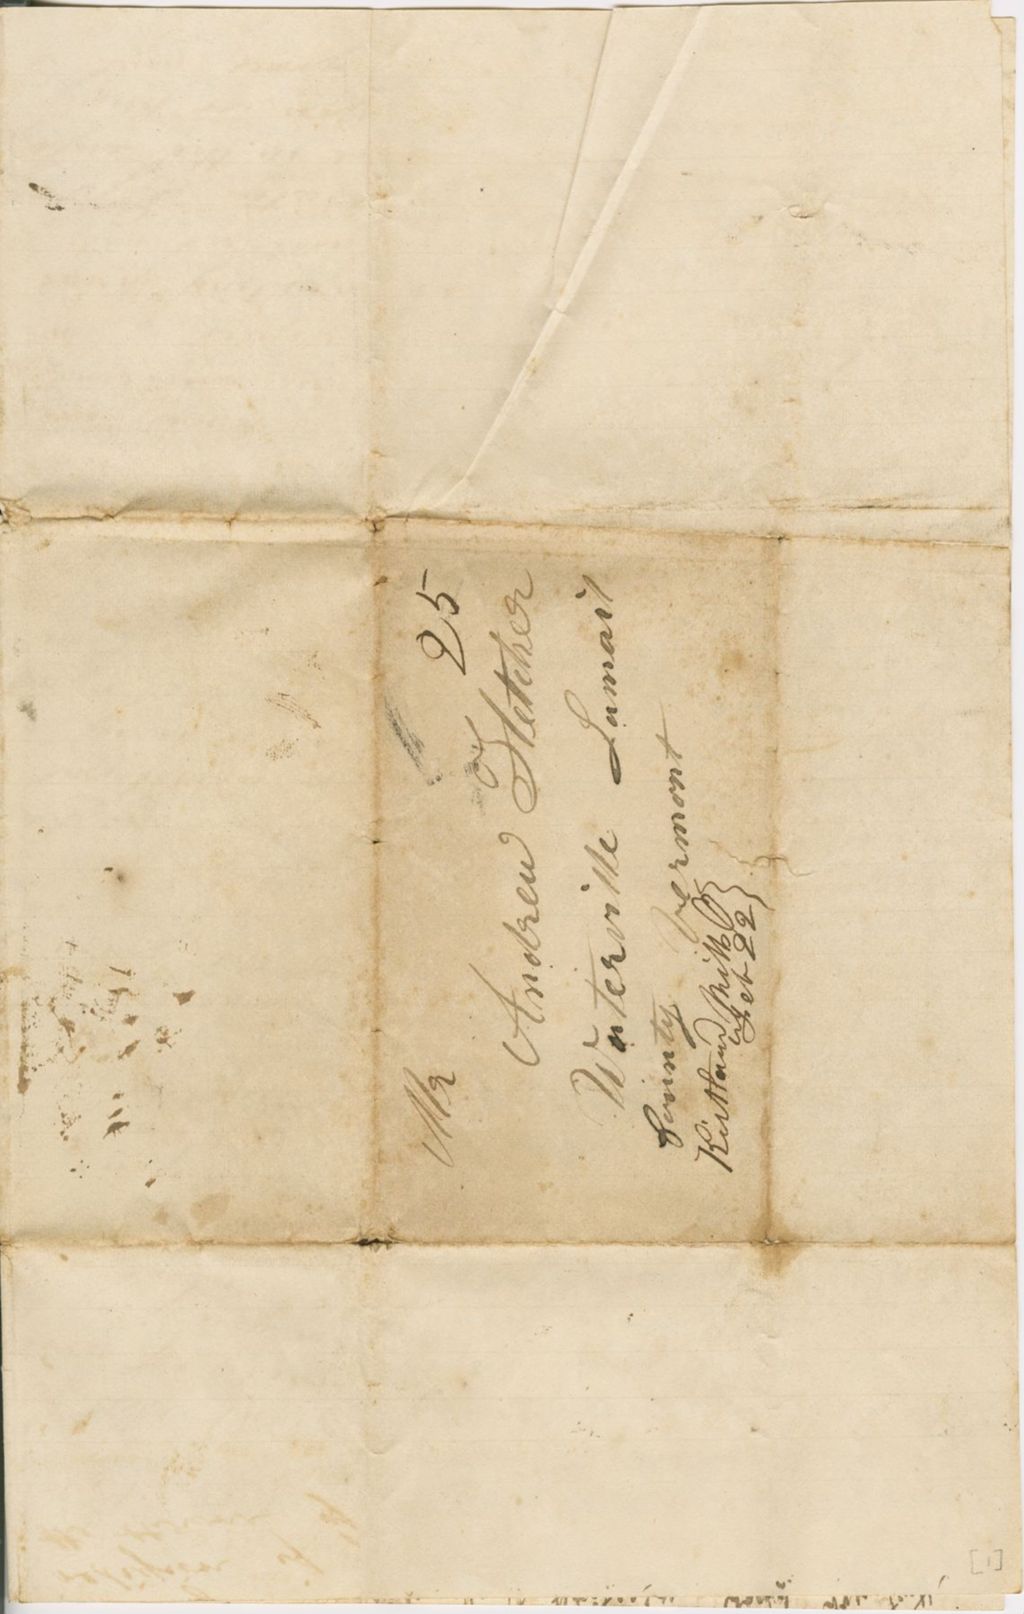 25
Mr
Andrew Fletcher
Waterville Lamail
County Vermont
Kirtland Mills O
Feb 22
[1]